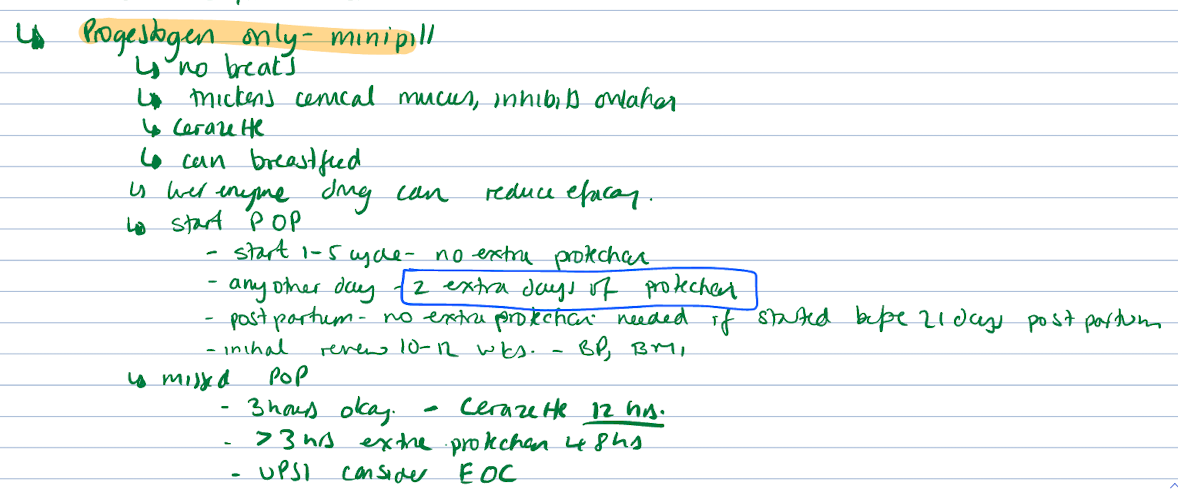 ↳ Progestogen only - minipill
↳ no breaks
↳ thickens cervical mucus, inhibits ovulation
↳ Cerazette
↳ can breastfeed
↳ liver enzyme drug can reduce efficacy.
↳ start POP
- start 1-5 cycle - no extra protection
- any other day - 2 extra days of protection
- post partum - no extra protection needed if started before 21 days post partum
- initial review 10-12 wks. - BP, BMI,
↳ missed POP
- 3 hours okay. - Cerazette 12 hrs.
- >3 hrs extra protection 48hs
- UPSI consider EOC